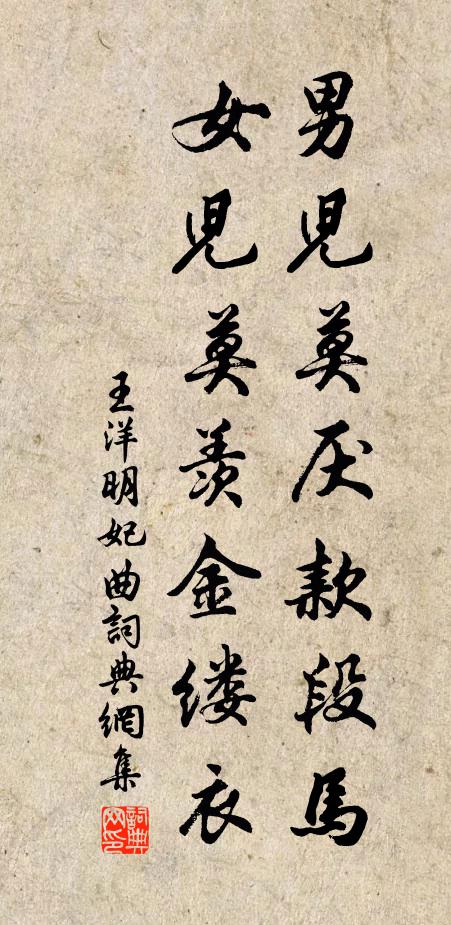 男児莫厌款段馬
女児莫羨金缕衣
王洋明妃曲詞典網集
詞典网印